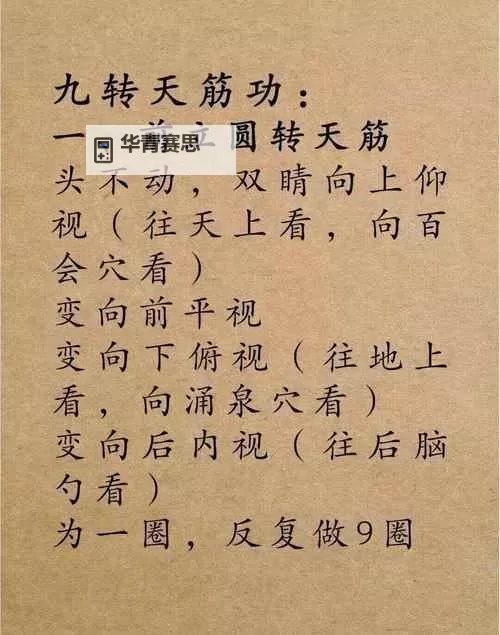 九转天筋功：
一、前立圆转天筋
华青赛思
头不动，双睛向上仰
视（往天上看，向百
会穴看）
变向前平视
变向下俯视（往地上
看，向涌泉穴看）
变向后内视（往后脑
勺看）
为一圈，反复做9圈